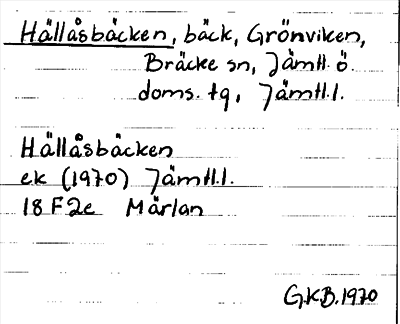 Hällåsbäcken, bäck, Grönviken,
Bräcke sn, Jämtl. ö.
doms. tg, Jämtl.l.
Hällåsbäcken
ek (1970) Jämtl.l.
18 F 2e Märlan
G.K.B. 1970